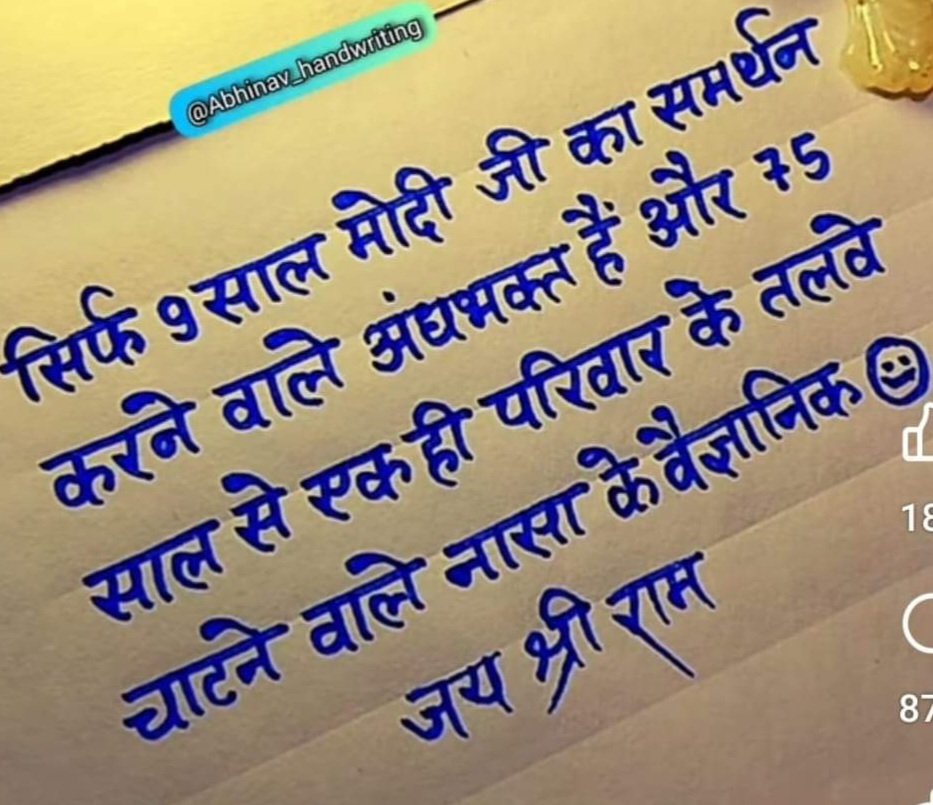 @Abhinav_handwriting
सिर्फ 9 साल मोदी जी का समर्थन
करने वाले अंधभक्त हैं और 75
साल से एक ही परिवार के तलवे
चाटने वाले नासा के वैज्ञानिक
जय श्री राम
18
87